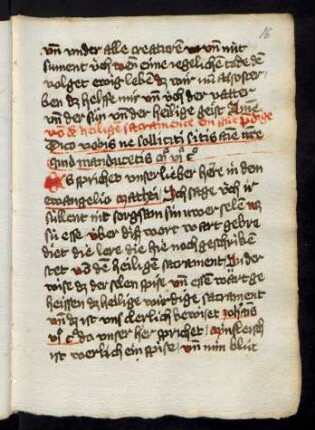 16
vnd vnder alle creaturen vnd mit
sument v́ch wen eine iegelichen tode dē
volget ewig leben dz wir nu also ster
ben dz helffe mir vnd v́ch der vatter
vnd der sun vnd der heilige geist Amē
vō dē heilige sacramente ein gut p̄dige
Dico vobis ne solliciti sitis aīe vr̄e
quid manducetis mͭ vjͦ cͦ
Es sprichet vnser lieber here in dem
ewangelio mathei Ich sage v́ch ir
sullent nit sorgsam sin uwer selen wz
su esse vber diß wort wart gebre
diet die lere die hie noch geschriben
stet vō dē heiligen sacrament In der
wise dz der selen spise vnd essen wart ge
heissen dz heilige wurdige sacrament
vnd dz ist vns clerlich bewiset Johānes
vjͦ cͦ do vnser her sprichet min fleisch
ist werlich ein spise vnd min blut